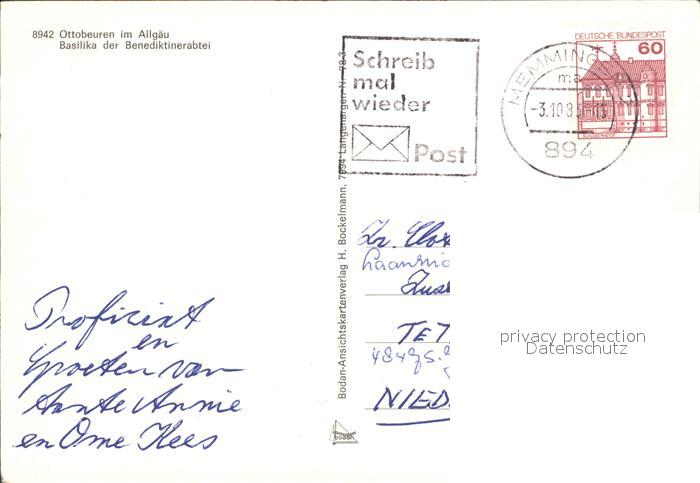 8942 Ottobeuren im Allgäu
Basilika der Benediktinerabtei
Schreib
mal
wieder
Post
MEMMING
ma
-3.10.8
894
DEUTSCHE BUNDESPOST
60
Bodan-Ansichtskartenverlag H. Bockelmann, 7994 Langenargen Nr. 78-3
Proficiat
en
Groeten van
tante Annie
en Ome Kees
TET
NIED
bodan
privacy protection
Datenschutz